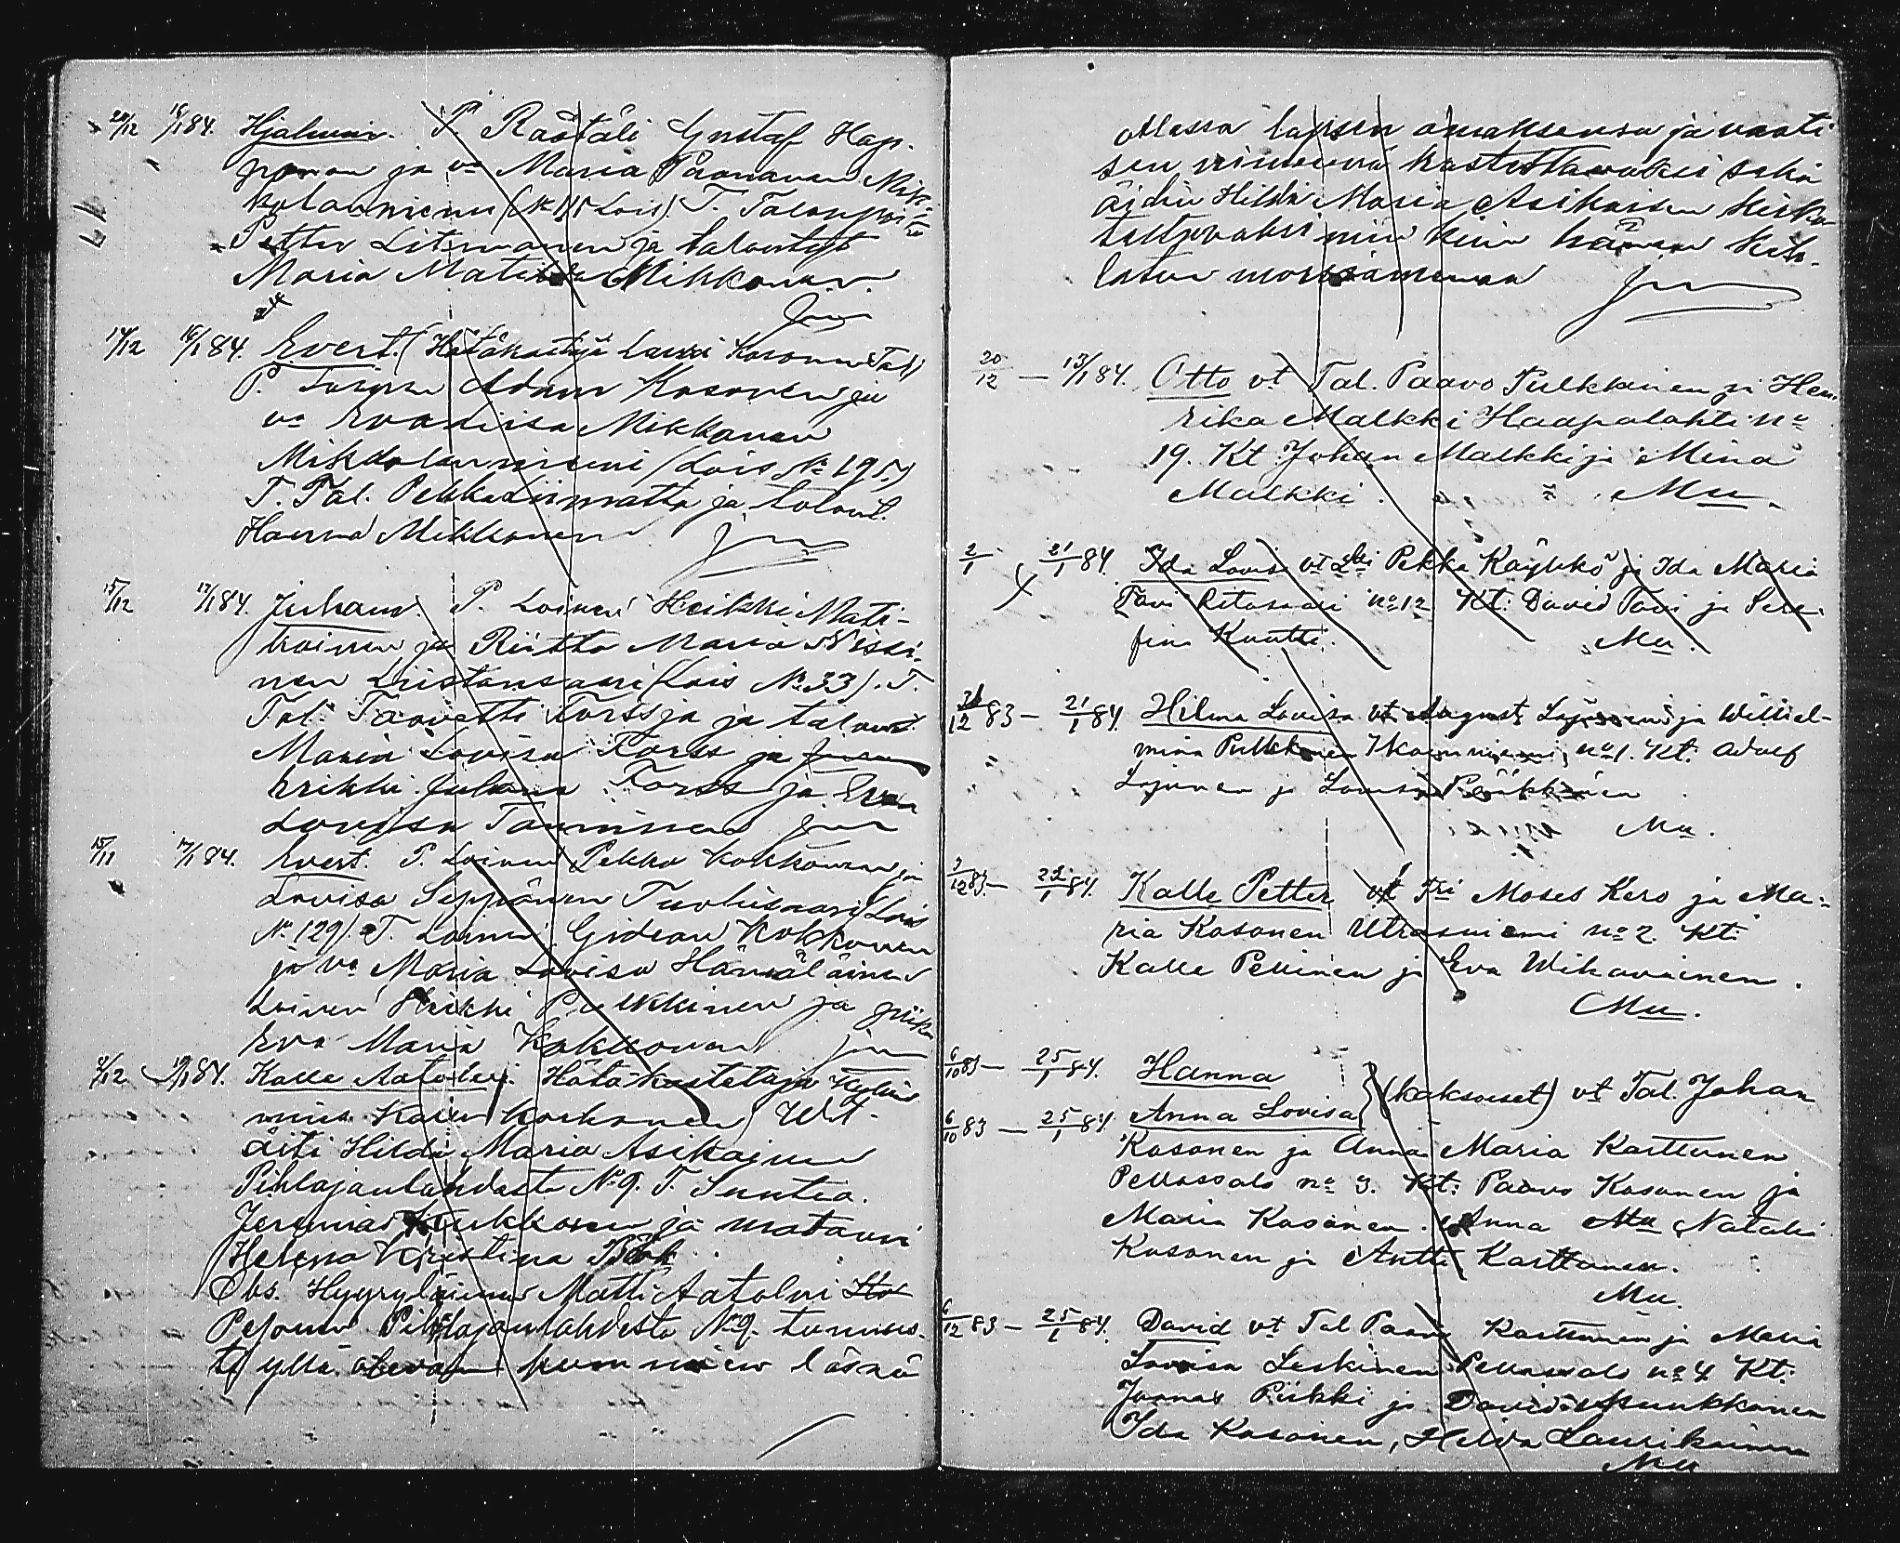 20/12 16/1 84. Hjalmar. P. Räätäli Gustaf Hap-
ponen ja vo Maria Paananen Mik-
kolanniemi (No 195 Lois). T. Talonpoika
Petter Litmanen ja talontyt
Maria Matilda Mikkonen.
14/12 16/1 84. Evert. (Hätäkastaja Lassi Kosonen Tal)
P. Adam Kosonen ja
vo Eva Liisa Mikkonen
Mikkolanniemi (Lois No 195)
T. Tal. Pekka Liimatta ja talont.
Hanna Mikkonen
15/12 17/1 84. Juhana. P. Loinen Heikki Mati-
kainen ja Riitta Maria Nissi-
nen (Lois No 33). T.
Tal. Taavetti Forss ja talont.
Maria Lovisa Forss ja
Juhana Forss ja Eva
Lovisa
15/11 17/1 84. Evert. P. Loinen Pekka Kokkonen ja
Lovisa Seppänen Tuolisaari (Lois
No 129). T. Loinen Gideon Kokkonen
ja vo Maria Lovisa Hämäläinen
Loinen Heikki Pulkkinen ja piika
Eva Maria Kokkonen
/12 19/1 84. Kalle Aatolvi. Hätäkastetaja
Karen Korhonen) Wt
äiti Hilda Maria Asikainen
Pihlajanlahdesta No 9. T. Suntio
Jeremias Kukkonen ja matami
Helena Kristina Böök
Obs. Hyyryläinen Matti Aatolvi
Pesonen Pihlajanlahdesta No 9. tunnus-
ti yllä olevan kummien läsnä
ollessa lapsen omaksensa ja vaati
sen nimeensä kastettavaksi sekä
äidin Hilda Maria Asikaisen kirko
tettavaksi niin kuin hänen kih-
latun morsiamensa
20/12 — 13/1 84. Otto vt Tal. Paavo Pulkkinen ja Hen
rika Malkki Haapalahti no
19. Kt Johan Malkki ja Mina
Malkki. Mu.
2/1 21/1 84. Ida Lovis vt Loi Pekka Käyhkö ja Ida Maria
Tavi Ritosaari no 12 Kt: David Tavi ja Sera
fina Kuutti. Mu.
31/12 83 — 21/1 84. Hilma Lovisa vt August Lajunen ja Wilhel-
mina Pulkkinen no 1. Kt: Adolf
Lajunen ja Lovisa Pöikkönen
Mu.
3/12 83 — 22/1 84. Kalle Petter vt Tri Moses Kero ja Ma-
ria Kosonen Utrasniemi no 2. Kt:
Kalle Pellinen ja Eva Wihavainen.
Mu.
6/10 83 — 25/1 84. Hanna
6/10 83 — 25/1 84. Anna Lovisa } (kaksoiset) vt Tal. Johan
Kosonen ja Anna Maria Karttunen
Pellossalo no 3. Kt: Paavo Kosonen ja
Maria Kosonen. Anna Mu Natalia
Kosonen ja Antti Karttunen.
Mu.
6/12 83 — 25/1 84. David vt Tal Paavo Karttunen ja Maria
Lovisa Leskinen Pellossalo no 4 Kt:
Joonas Piikki ja David Munkkonen
Ida Kosonen, Hilda Laurikainen
Mu